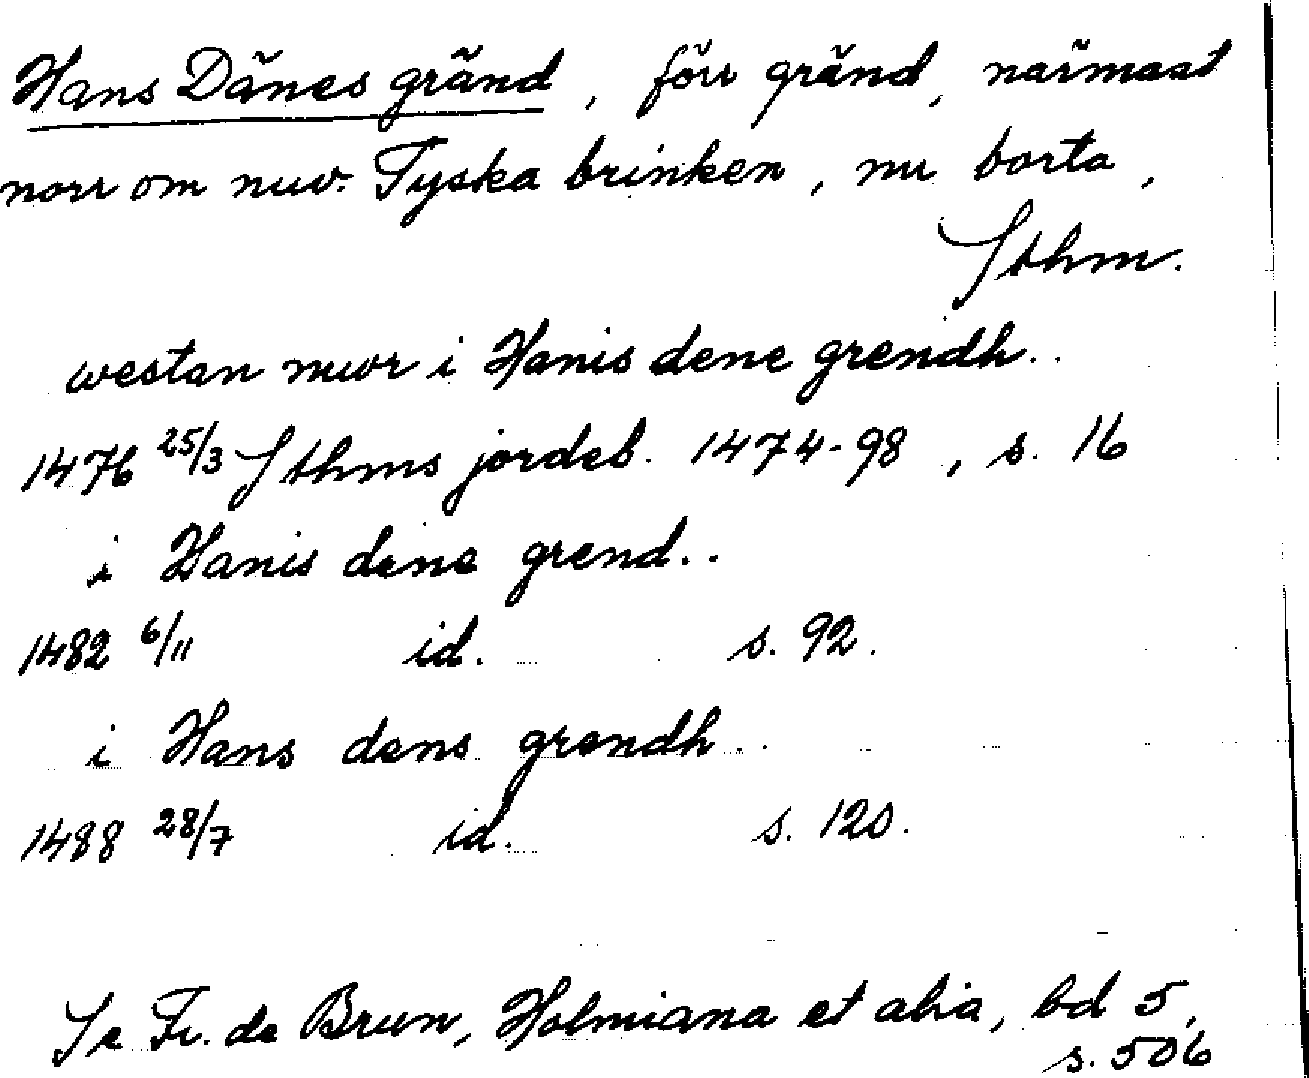 Hans Dänes gränd, förr gränd, närmast
norr om nuv. Tyska brinken, nu borta,
Sthm.
westan mwr i Hanis dene grendh..
1476 25/3 Sthms jordeb. 1474-98, s. 16
i Hanis dene grend..
1482 6/11 id. s. 92.
i Hans dens grendh..
1488 28/7 id. s. 120.
Se Fr. de Brun, Holmiana et alia, bd 5,
s. 506